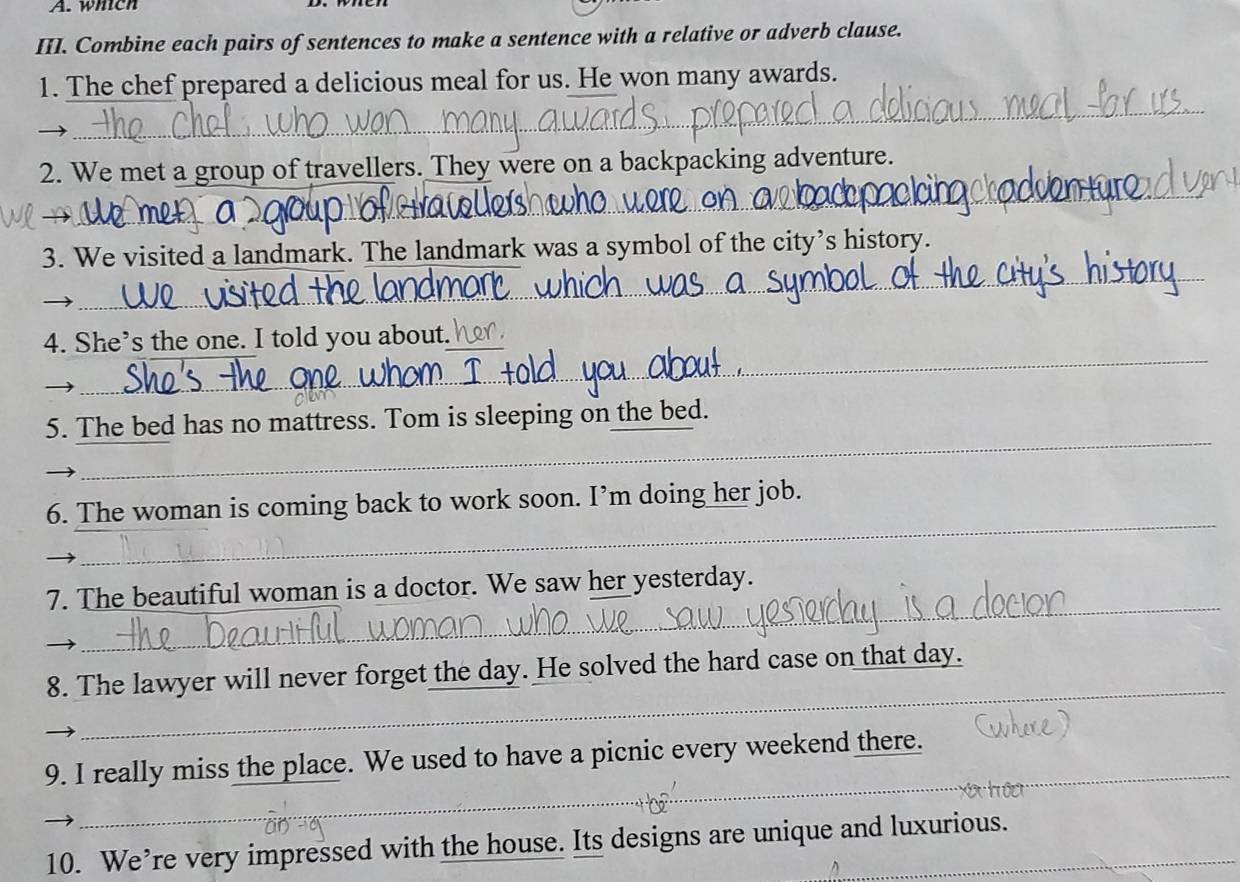 A. which B. when
III. Combine each pairs of sentences to make a sentence with a relative or adverb clause.
1. The chef prepared a delicious meal for us. He won many awards.
→ the chef, who won many awards, prepared a delicious meal for us.
2. We met a group of travellers. They were on a backpacking adventure.
we → we met a group of travellers who were on a backpacking adventure
3. We visited a landmark. The landmark was a symbol of the city's history.
→ we visited the landmark which was a symbol of the city's history
4. She's the one. I told you about. her.
→ She's the one whom I told you about.
5. The bed has no mattress. Tom is sleeping on the bed.
→
6. The woman is coming back to work soon. I'm doing her job.
→
7. The beautiful woman is a doctor. We saw her yesterday.
→ the beautiful woman who we saw yesterday is a doctor
8. The lawyer will never forget the day. He solved the hard case on that day.
→
(where)
9. I really miss the place. We used to have a picnic every weekend there.
→
10. We're very impressed with the house. Its designs are unique and luxurious.